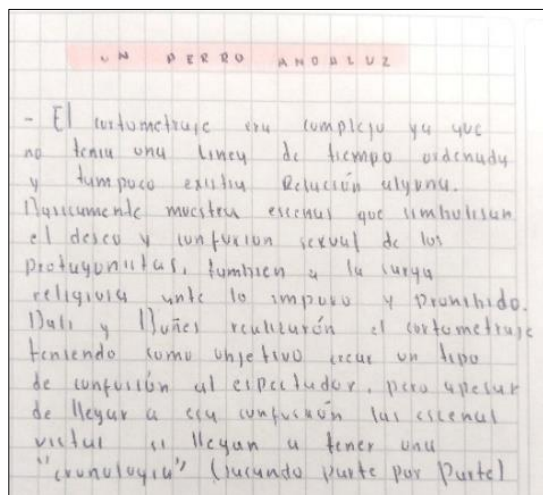 UN PERRO ANDALUZ
- El cortometraje era complejo ya que
no tenia una linea de tiempo ordenada
y tampoco existia Relación alguna.
Basicamente muestra escenas que simbolisan
el deseo y confusion sexual de los
protagonistas, tambien a la carga
religiosa ante lo impuro y Prohibido.
Dali y Buñes realizarón el cortometraje
teniendo como objetivo crear un tipo
de confusión al espectador, pero apesar
de llegar a esa confusión las escenas
vistas si llegan a tener una
"cronologia" (sacando parte por parte)